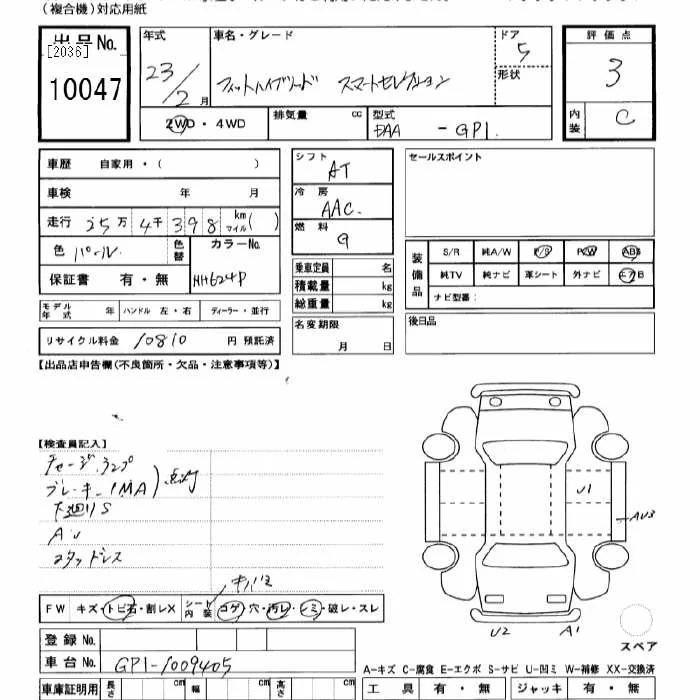 (複合機)対応用紙
出品No.
[2036]
10047
年式
23/2月
車名・グレード
フィットハイブリッド スマートセレクション
ドア 5
形状
評価点
3
内装 C
2WD・4WD
排気量 cc
型式
DAA - GP1.
車歴 自家用・( )
車検 年 月
走行 25万4千398 km マイル( )
色 パール.
色替
カラーNo.
NH624P
保証書 有・無
モデル年式 年 ハンドル 左・右 ディーラー・並行
リサイクル料金 10810 円 預託済
シフト AT
冷房 AAC.
燃料 G
乗車定員 名
積載量 kg
総重量 kg
名変期限
月 日
セールスポイント
装備品
S/R 純A/W P/S P/W ABS
純TV 純ナビ 革シート 外ナビ エアB
ナビ型番:
後日品
【出品店申告欄(不良箇所・欠品・注意事項等)】
【検査員記入】
チャージランプ
ブレーキ(IMA) 点灯
下廻りS
AU
スタッドレス
キバミ
FW キズ・トビ石・割レX シート内装 コゲ・穴・汚レ・シミ・破レ・スレ
U1
AU3
U2 A1
スペア
登録No.
車台No. GP1-1009405
A-キズ C-腐食 E-エクボ S-サビ U-凹ミ W-補修 XX-交換済
車庫証明用 長さ cm 幅 cm 高さ cm
工具 有・無 ジャッキ 有・無